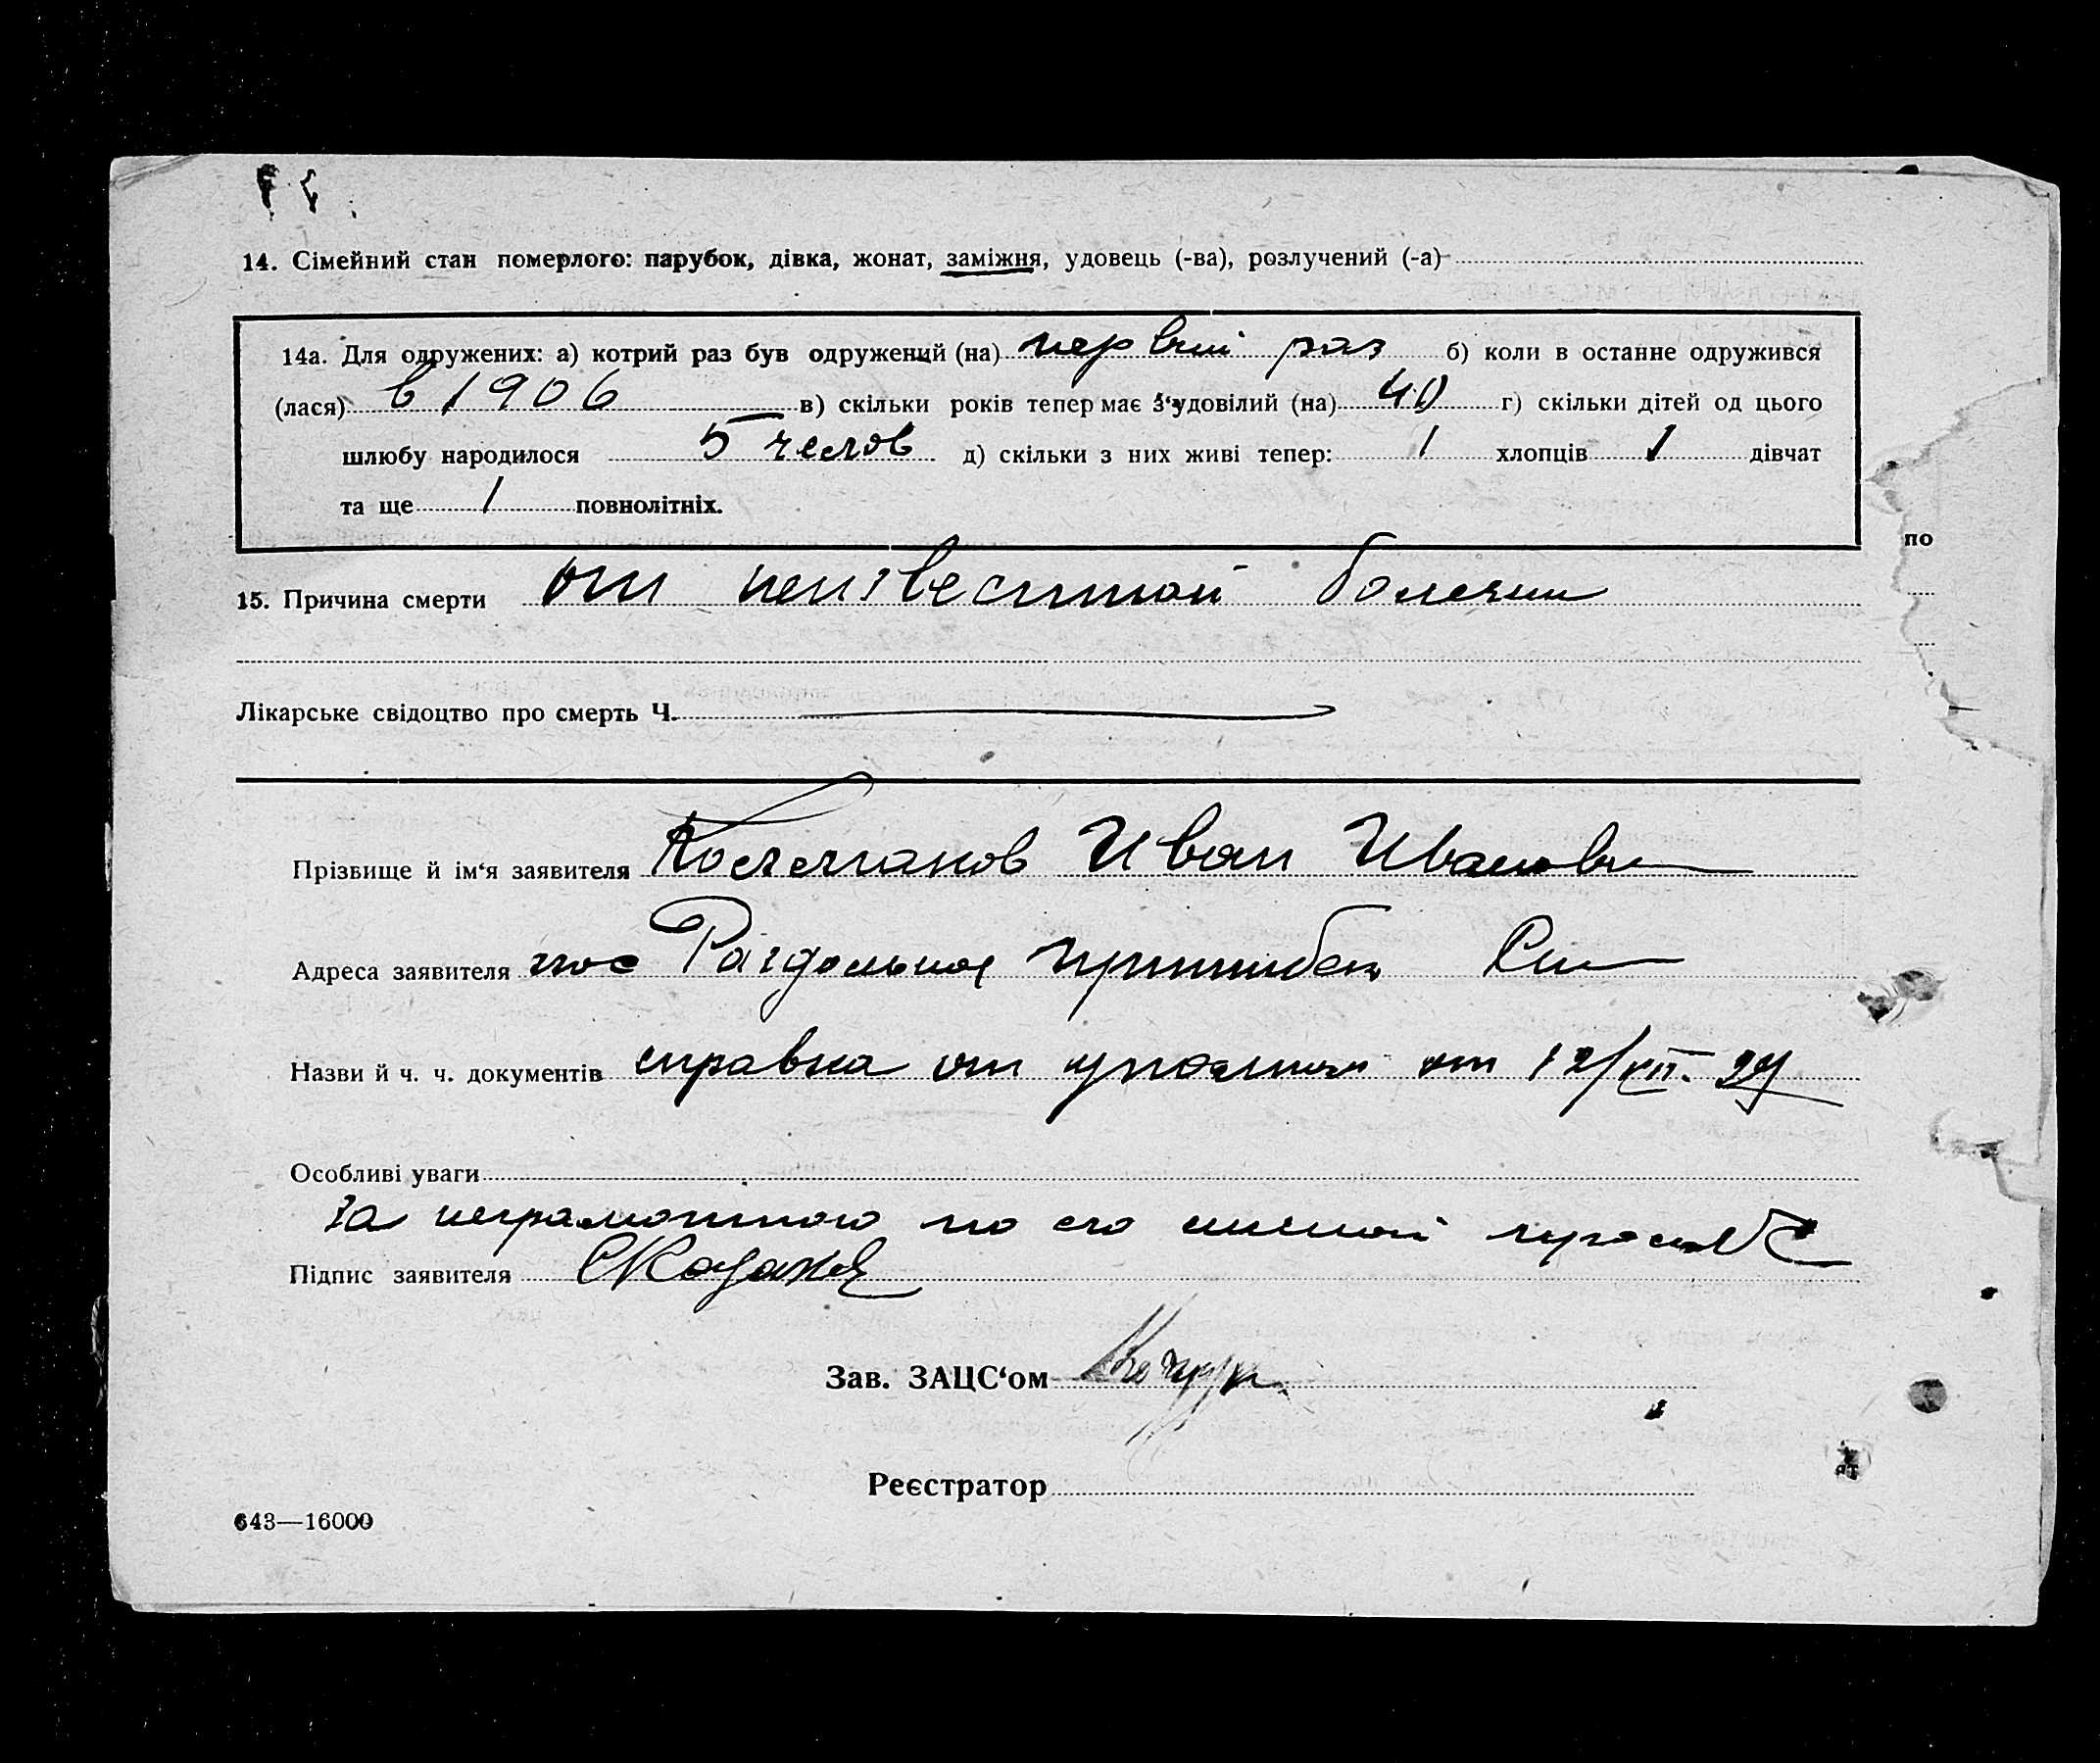 14. Сімейний стан померлого: парубок, дівка, жонат, заміжня, удовець (-ва), розлучений (-а)
14а. Для одружених: а) котрий раз був одружений (на) первий раз б) коли в останне одружився
(лася) в 1906 в) скільки років тепер має з‘удовілий (на) 40 г) скільки дітей од цього
шлюбу народилося 5 челов д) скільки з них живі тепер: 1 хлопців 1 дівчат
та ще 1 повнолітніх.
по
15. Причина смерти от неизвестной болезни
Лікарське свідоцтво про смерть Ч.
Прізвище й ім‘я заявителя Иван Иванови
Адреса заявителя пос Раздольное
Назви й ч. ч. документів справка от уполном от 12/XII.
Особливі уваги
За неграмотного по его личной
Підпис заявителя
Зав. ЗАЦС‘ом
ат
Реєстратор
643—16000